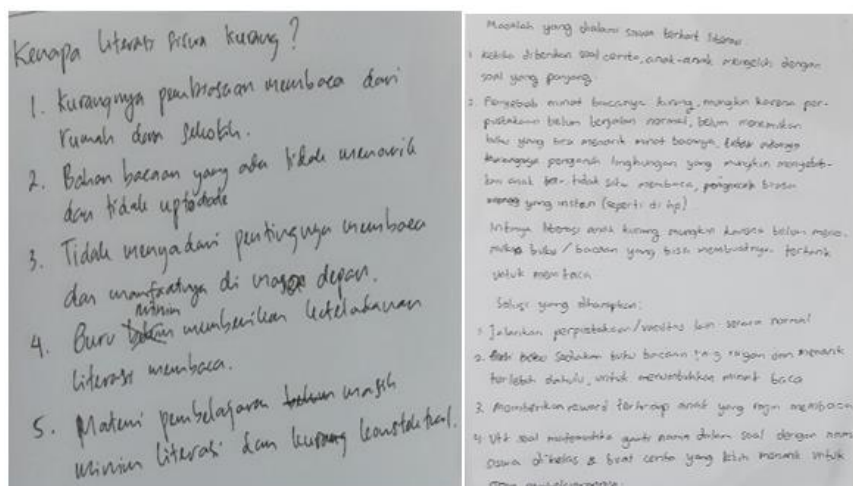 Kenapa literasi siswa kurang?
1. Kurangnya pembiasaan membaca dari
rumah dan sekolah.
2. Bahan bacaan yang ada tidak menarik
dan tidak uptodate
3. Tidak menyadari pentingnya membaca
dan manfaatnya di masa depan.
minim
4. Guru memberikan keteladanan
literasi membaca.
5. Materi pembelajaran masih
minim literasi dan kurang kontekstual.
Masalah yang dialami siswa terkait literasi
1. Ketika diberikan soal cerita, anak-anak mengeluh dengan
soal yang panjang
2. Penyebab minat bacanya kurang, mungkin karena per-
pustakaan belum berjalan normal, belum menemukan
buku yang bisa menarik minat bacanya,
pengaruh lingkungan yang mungkin menyebab-
kan anak tidak suka membaca,
yang instan (seperti di hp)
Intinya literasi anak kurang mungkin karena belum mene-
mukan buku / bacaan yang bisa membuatnya tertarik
untuk membaca
Solusi yang diharapkan:
1. Jalankan perpustakaan/ lain secara normal
2. Sediakan buku bacaan yang ragam dan menarik
terlebih dahulu, untuk menumbuhkan minat baca
3. Memberikan reward terhadap anak yang rajin membaca
4. Utk soal matematika ganti nama dalam soal dengan nama
siswa di kelas & buat cerita yang lebih menarik untuk